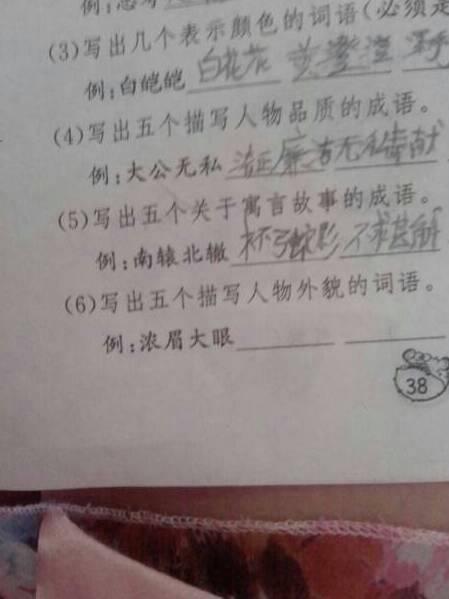 (3)写出几个表示颜色的词语(必须是
例:白皑皑 白花花 黄澄澄
(4)写出五个描写人物品质的成语。
例:大公无私 清正廉洁 无私奉献
(5)写出五个关于寓言故事的成语。
例:南辕北辙 杯弓蛇影 不求甚解
(6)写出五个描写人物外貌的词语。
例:浓眉大眼
38